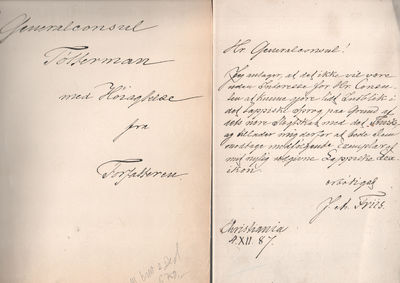 Generalconsul
Tötterman
med Höiagtelse
fra
Forfatteren
Hr. Generalconsul!
Jeg antager, at det ikke vil være
uden Interesse for Hr. Consu-
len at kunne gjøre lidt Indblik i
det lappiske Sprog paa Grund af
dets nære Slægtskab med det Finske
og tillader mig derfor at bede Dem
modtage medfølgende Exemplar af
mit nylig udgivne Lappiske Lex-
ikon.
ærbødigst
J. A. Friis.
Christiania
4. XII. 87.